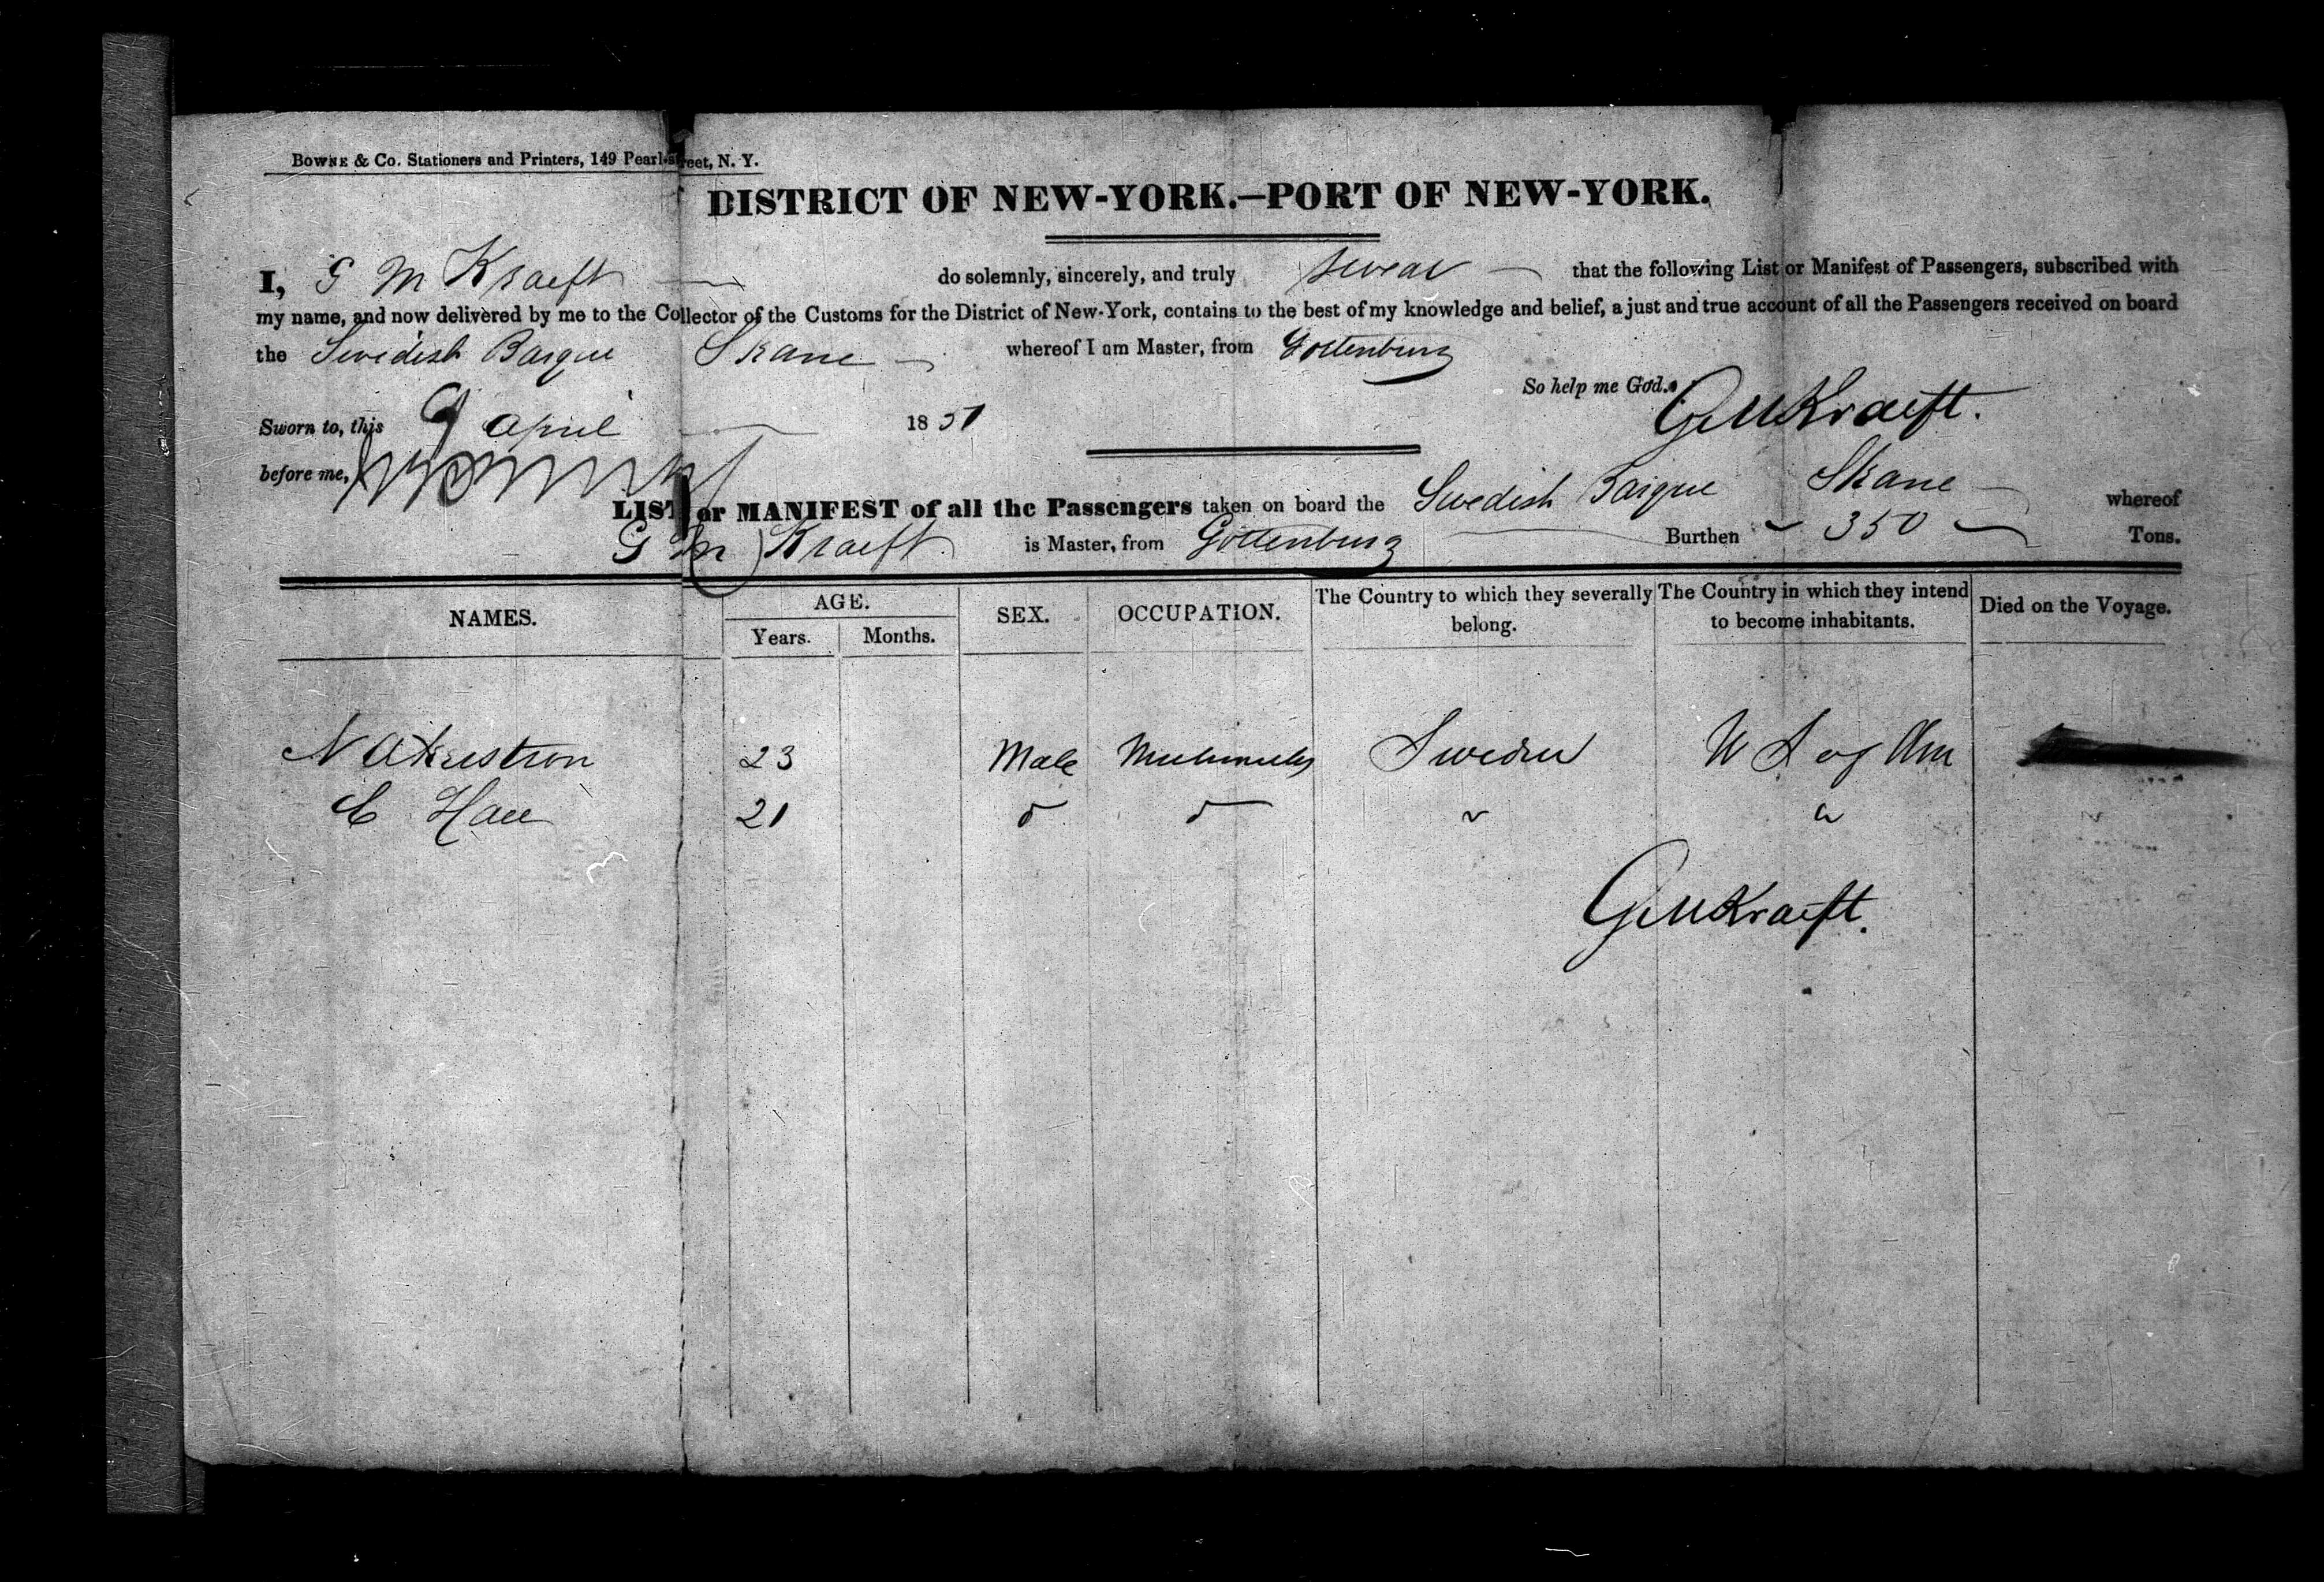 BOWNE & CO. Stationers and Printers, 149 Pearl-street, N. Y.
DISTRICT OF NEW-YORK.—PORT OF NEW-YORK.
I, G M Kraeft do solemnly, sincerely, and truly swear that the following List or Manifest of Passengers, subscribed with
my name, and now delivered by me to the Collector of the Customs for the District of New-York, contains to the best of my knowledge and belief, a just and true account of all the Passengers received on board
the Swedish Barque Skane whereof I am Master, from Gottenburg
So help me God.
Sworn to, this 9 April 1851 GMKraeft.
before me,
LIST or MANIFEST of all the Passengers taken on board the Swedish Barque Skane whereof
G M Kraeft is Master, from Gottenburg Burthen 350 Tons.
NAMES. AGE. Years. Months. SEX. OCCUPATION. The Country to which they severally belong. The Country in which they intend to become inhabitants. Died on the Voyage.
N 23 Male Sweden U S of Am
C Hall 21 " "
GMKraeft.